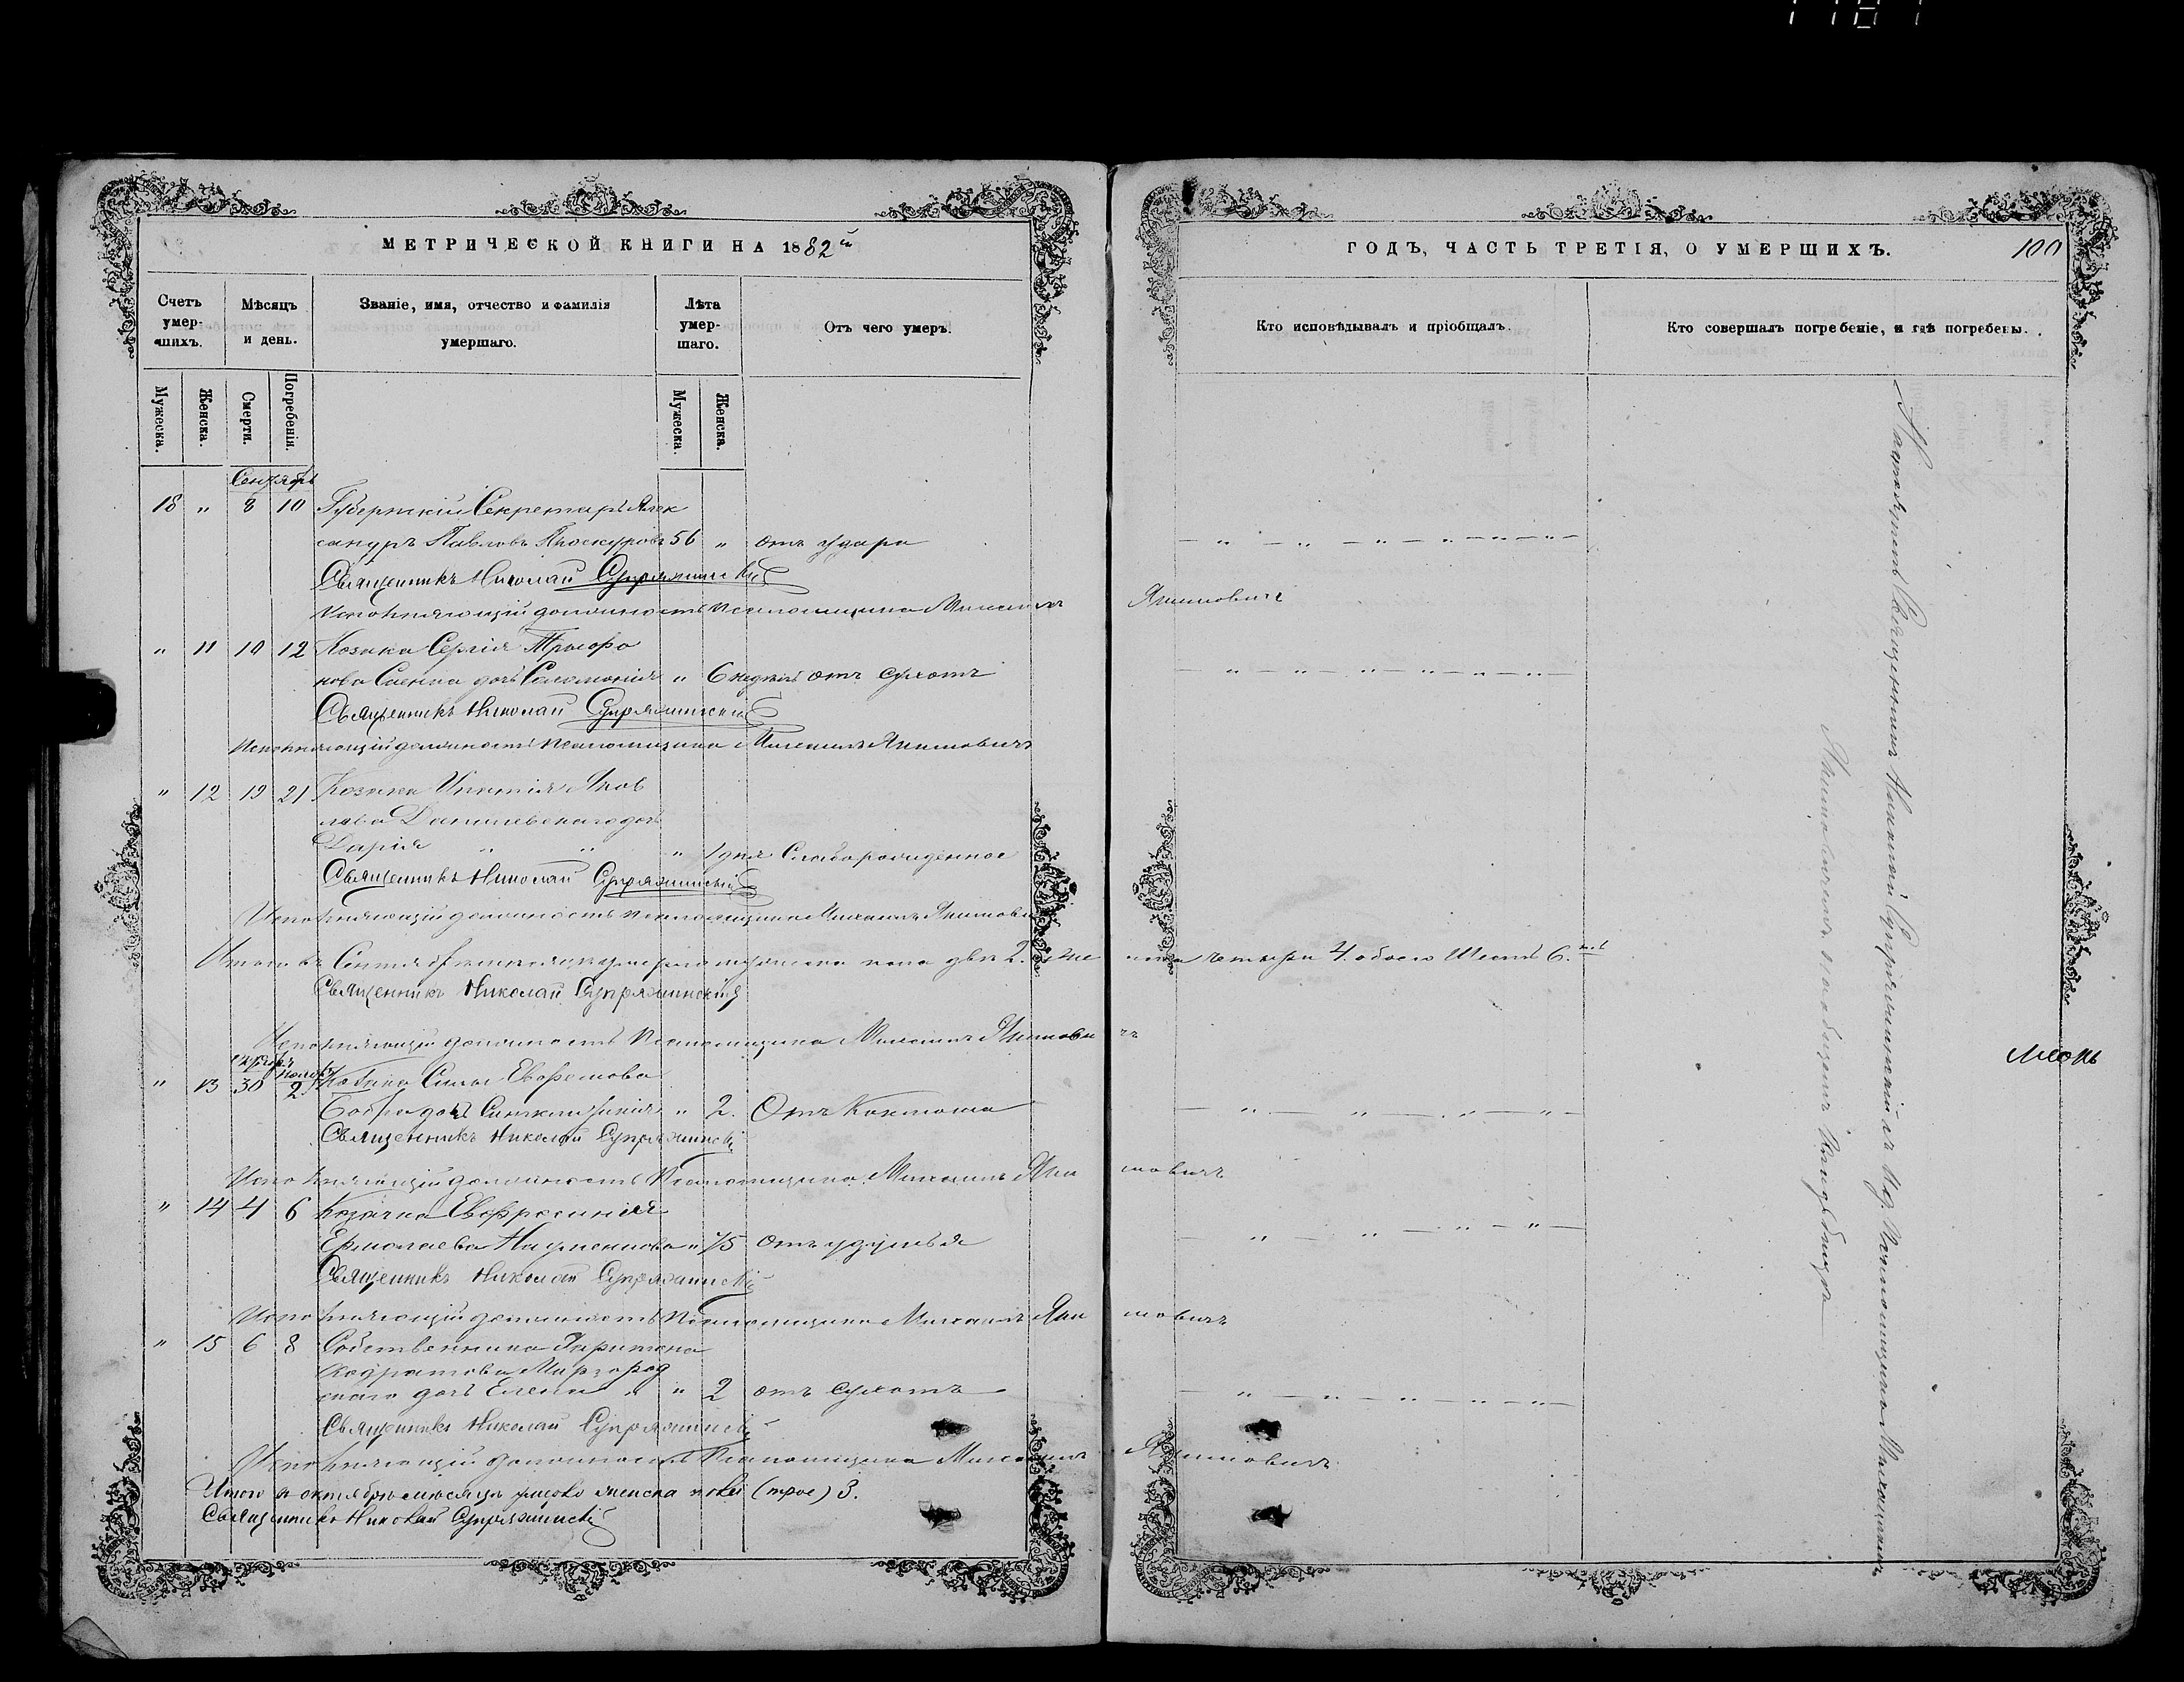 МЕТРИЧЕСКОЙ КНИГИ НА 1882й
ГОДЪ, ЧАСТЬ ТРЕТІЯ, О УМЕРШИХЪ.
100
Счетъ умер-шихъ.
Мѣсяцъ и день.
Званіе, имя, отчество и фамилія умершаго.
Лѣта умер-шаго.
Отъ чего умеръ.
Кто исповѣдывалъ и пріобщалъ.
Кто совершалъ погребеніе, и гдѣ погребены.
Мужеска.
Женска.
Смерти.
Погребенія.
Мужеска.
Женска.
Сентябрь
18 " 8 10 Губернскій Секретарь Алек
сандръ Павловъ Проскуровъ 56 " отъ удара
Священникъ Николай Супряжинскій
Исполняющій должность псаломщика Михаилъ Якимовичъ
" 11 10 12 Козака Сергія Трифо
нова дочь Саломонія " 6 недѣль отъ сухотъ
Священникъ Николай Супряжинскій
Исполняющій должность псаломщика Михаилъ Якимовичъ
" 12 19 21 Козака Игнатія Яков
лева Данилевскаго дочь
Дарія " " " 1 дня Слаборожденное
Священникъ Николай Супряжинскій
Исполняющій должность псаломщика Михаилъ Якимович
Итого въ Сентябрѣ мѣсяцѣ умерло мужеска пола два 2. женска четыри 4. обоего Шесть 6.
Священникъ Николай Супряжинскій
Исполняющій должность Псаломщика Михаилъ Якимовичъ
октября ноября
" 13 30 2 Козака Силы
дочь Синклитикія " 2. Отъ Коклюша
Священникъ Николай Супряжинскі
Исполняющій должность Псаломщика Михаилъ Якимовичъ
" 14 4 6 Козачка Евфросинія
Ермолаева Науменкова " 75 отъ удушья
Священникъ Николай Супряжинскій
Исполняющій должность Псаломщика Михаилъ Якимовичъ
" 15 6 8 Собственника Харитона
Кодратова Миргород
скаго дочь Елена " " 2 отъ сухотъ
Священникъ Николай Супряжинскій
Исполняющій должность Псаломщика Михаилъ Якимовичъ
Итого въ октябрѣ мѣсяцѣ умерло женска пола (трое) 3.
Священникъ Николай Супряжинскій
Священникъ Николай Супряжинскій съ Псаломщикомъ Михаиломъ
Якимовичемъ на общемъ кладбищѣ